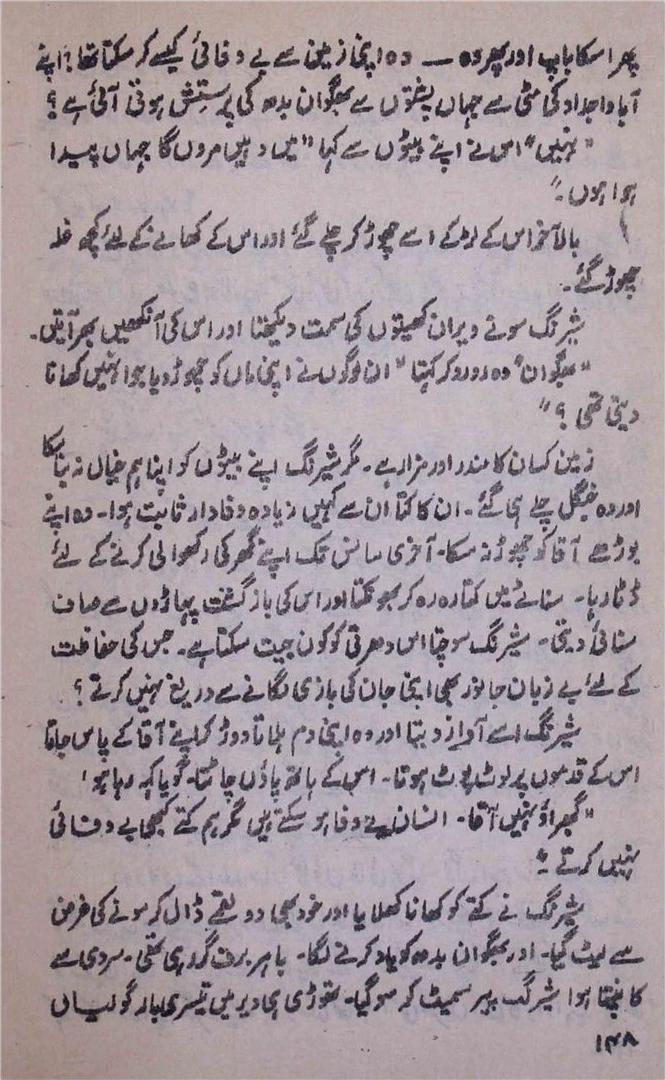 پھر اسکا باپ اور پھر وہ — وہ اپنی زمین سے بے وفائی کیسے کر سکتا تھا؟ اپنے
آباواجداد کی مٹی سے جہاں پشتوں سے بھگوان بدھ کی پرستش ہوتی آئی ہے؟
"نہیں" اس نے اپنے بیٹوں سے کہا "میں وہیں مروں گا جہاں پیدا
ہوا ہوں۔"
بالآخر اس کے لڑکے اسے چھوڑ کر چلے گئے اور اس کے کھانے کے لئے کچھ غلہ
چھوڑ گئے۔
شیرنگ سونے ویران کھیتوں کی سمت دیکھتا اور اس کی آنکھیں بھر آتیں۔
"بھگوان" وہ رو رو کر کہتا "ان لوگوں نے اپنی ماں کو چھوڑ دیا جو انہیں کھانا
دیتی تھی؟"
زمین کسان کا مندر اور مزار ہے۔ مگر شیرنگ اپنے بیٹوں کو اپنا ہم خیال نہ بنا سکا
اور وہ جنگل چلے ہی گئے۔ ان کا کتا ان سے کہیں زیادہ وفادار ثابت ہوا۔ وہ اپنے
بوڑھے آقا کو چھوڑ نہ سکا۔ آخری سانس تک اپنے گھر کی رکھوالی کرنے کے لئے
ڈٹا رہا۔ سناٹے میں کتا رہ رہ کر بھونکتا اور اس کی بازگشت پہاڑوں سے صاف
سنائی دیتی۔ شیرنگ سوچتا اس دھرتی کو کون جیت سکتا ہے۔ جس کی حفاظت
کے لئے بے زبان جانور بھی اپنی جان کی بازی لگانے سے دریغ نہیں کرتے؟
شیرنگ اسے آواز دیتا اور وہ اپنی دم ہلاتا دوڑ کر اپنے آقا کے پاس جاتا
اس کے قدموں پر لوٹ پوٹ ہوتا۔ اس کے ہاتھ پاؤں چاٹتا۔ گویا کہہ رہا ہو!
"گھبراؤ نہیں آقا۔ انسان بے وفا ہو سکتے ہیں مگر ہم کتے کبھی بے وفائی
نہیں کرتے"
شیرنگ نے کتے کو کھانا کھلایا اور خود بھی دو لقمے ڈال کر سونے کی غرض
سے لیٹ گیا۔ اور بھگوان بدھ کو یاد کرنے لگا۔ باہر برف گر رہی تھی۔ سردی سے
کانپتا ہوا شیرنگ پیر سمیٹ کر سو گیا۔ تھوڑی ہی دیر میں تیسری بار گولیاں
۱۴۸